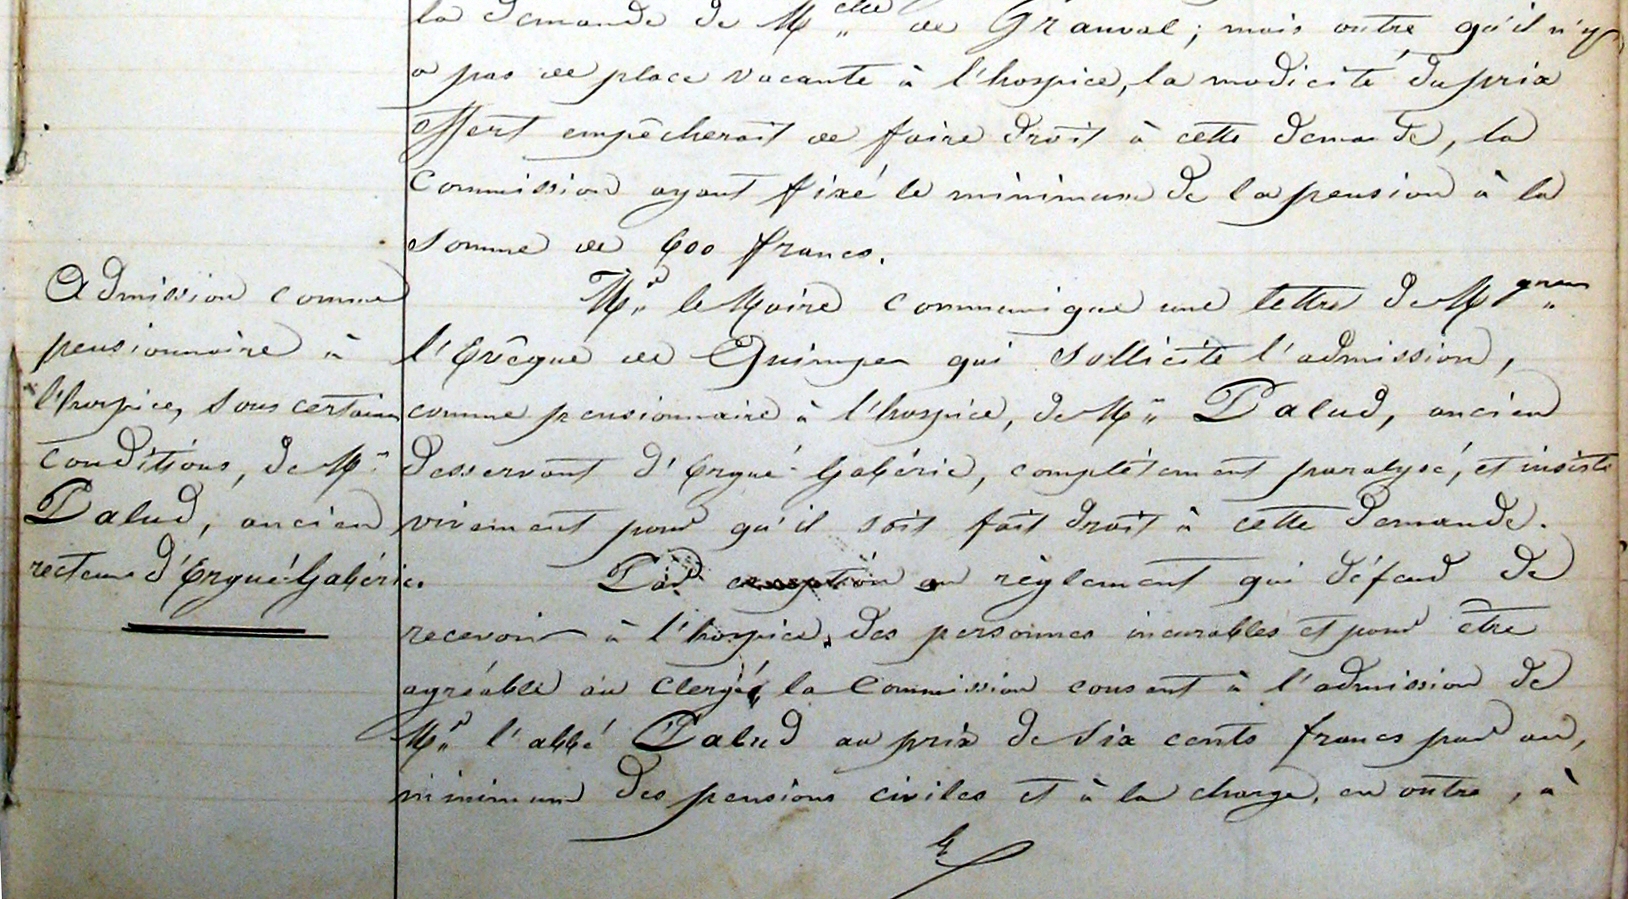 la demande de Melle de Granval ; mais outre qu'il n'y
a pas de place vacante à l'hospice, la modicité du prix
offert empêcherait de faire droit à cette demande, la
Commission ayant fixé le minimum de la pension à la
somme de 600 francs.
Admission comme
pensionnaire à
l'hospice, sous certaines
conditions, de Mr
Palud, ancien
recteur d'Ergué-Gabéric.
Mr le Maire communique une lettre de Mgneur
l'Evêque de Quimper qui sollicite l'admission,
comme pensionnaire à l'hospice, de Mr Palud, ancien
desservant d'Ergué-Gabéric, complètement paralysé, et insiste
vivement pour qu'il soit fait droit à cette demande.
Par exception au règlement qui défend de
recevoir à l'hospice, des personnes incurables et pour être
agréable au Clergé, la Commission consent à l'admission de
Mr l'abbé Palud au prix de Six cents francs par an,
minimum des pensions civiles et à la charge, en outre, à